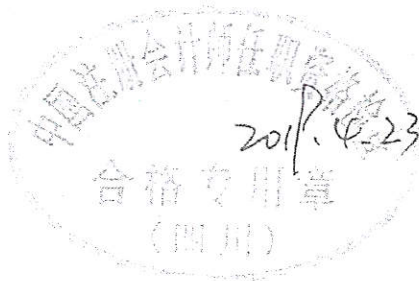 中国注册会计师任职资格检查
2019.4.23
合格专用章
(四川)